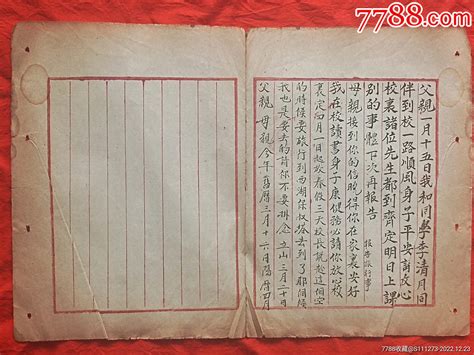 7788.com
父親一月十五日我和同學李清月同
伴到校一路順風身子平安請放心
校裏諸位先生都到齊定明日上課
別的事體下次再報告
報告旅行事
母親接到你的信曉得你在家裏安好
我在校讀書身子康健務必請你放心校
裏定四月一日起放春假三天校長就趁這個空
的時候要旅行到西湖保俶塔去到了那個時候
我也是要去的請你不要掛念 立山 三月二十日
父親 母親 今年舊曆三月十六日陽曆四月
7788收藏@S111273-2022.12.23